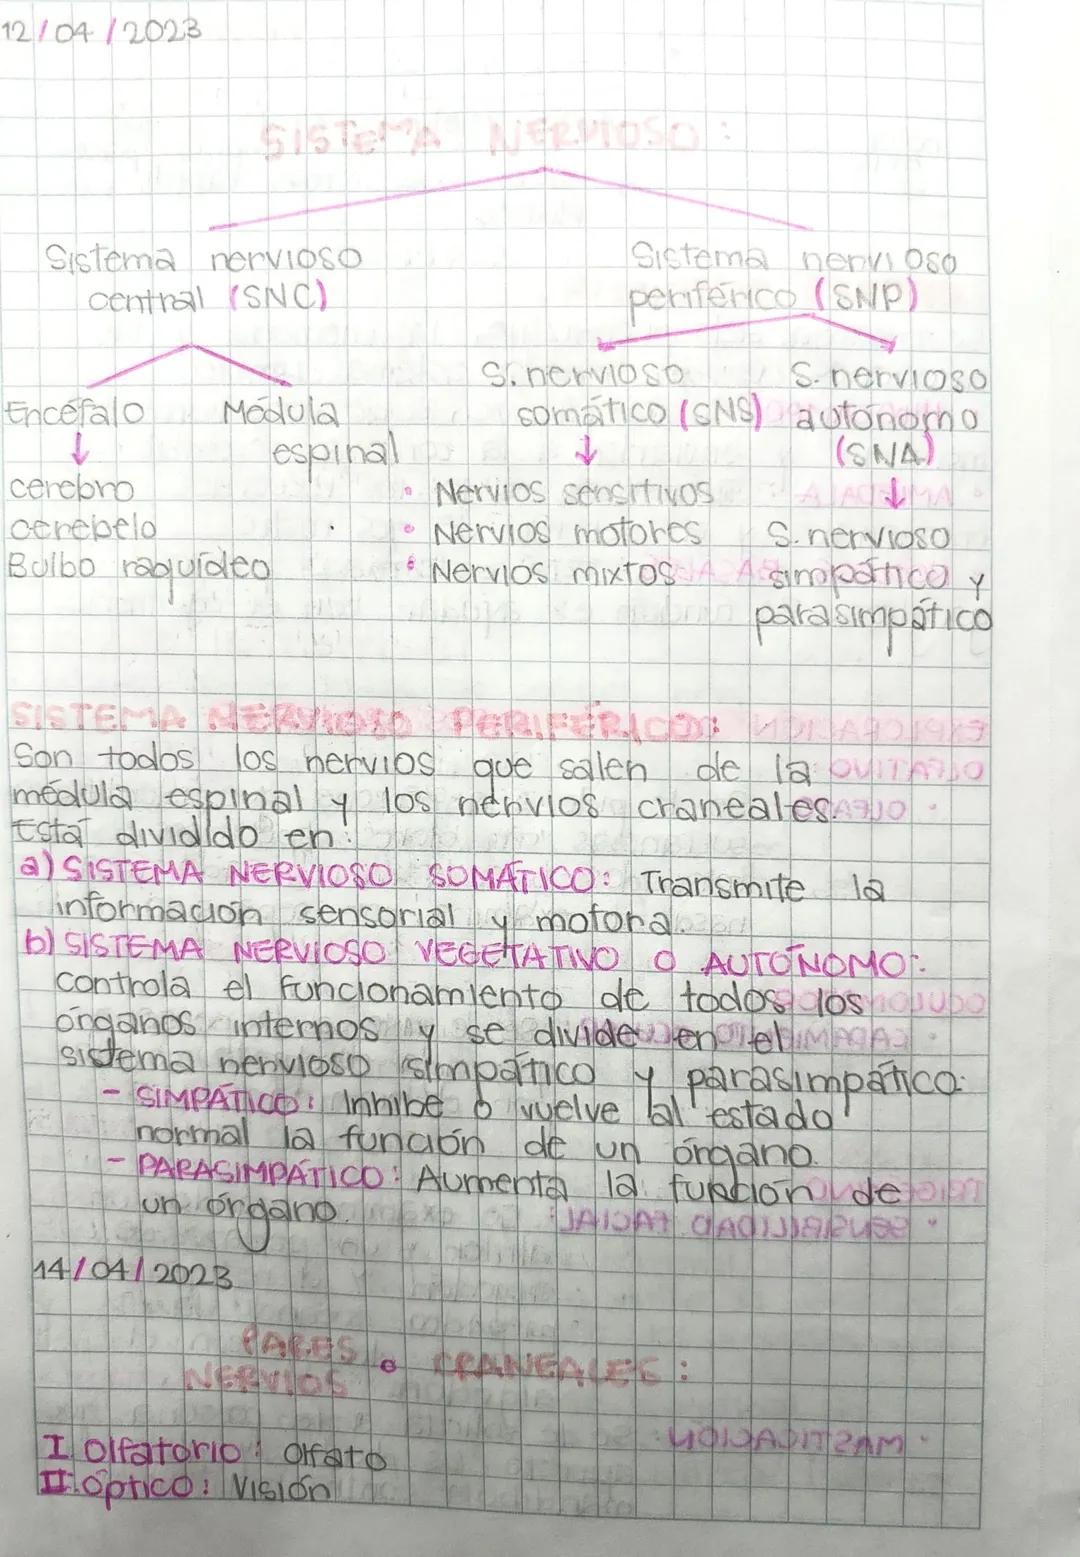 12/04/2023
SISTEMA NERVIOSO:
Sistema nervioso
central (SNC)
Sistema nervioso
periférico (SNP)
Encéfalo
Médula
espinal
cerebro
cerebelo
Bulbo raquídeo
S. nervioso
somático (SNS)
• Nervios sensitivos
• Nervios motores
• Nervios mixtos
S. nervioso
autónomo
(SNA)
S. nervioso
simpático y
parasimpático
SISTEMA NERVIOSO PERIFÉRICO:
Son todos los nervios que salen de la
médula espinal y los nérvios craneales.
Está dividido en:
a) SISTEMA NERVIOSO SOMÁTICO: Transmite la
información sensorial y motora.
b) SISTEMA NERVIOSO VEGETATIVO O AUTÓNOMO:
controla el funcionamiento de todos los
órganos internos y se divide en el
sistema nervioso simpático y parasimpático.
- SIMPÁTICO: Inhibe o vuelve al estado
normal la función de un órgano.
- PARASIMPÁTICO: Aumenta la función de
un órgano.
14/04/2023
PARES
NERVIOS • CRANEALES:
I. Olfatorio: Olfato
II. Óptico: Visión